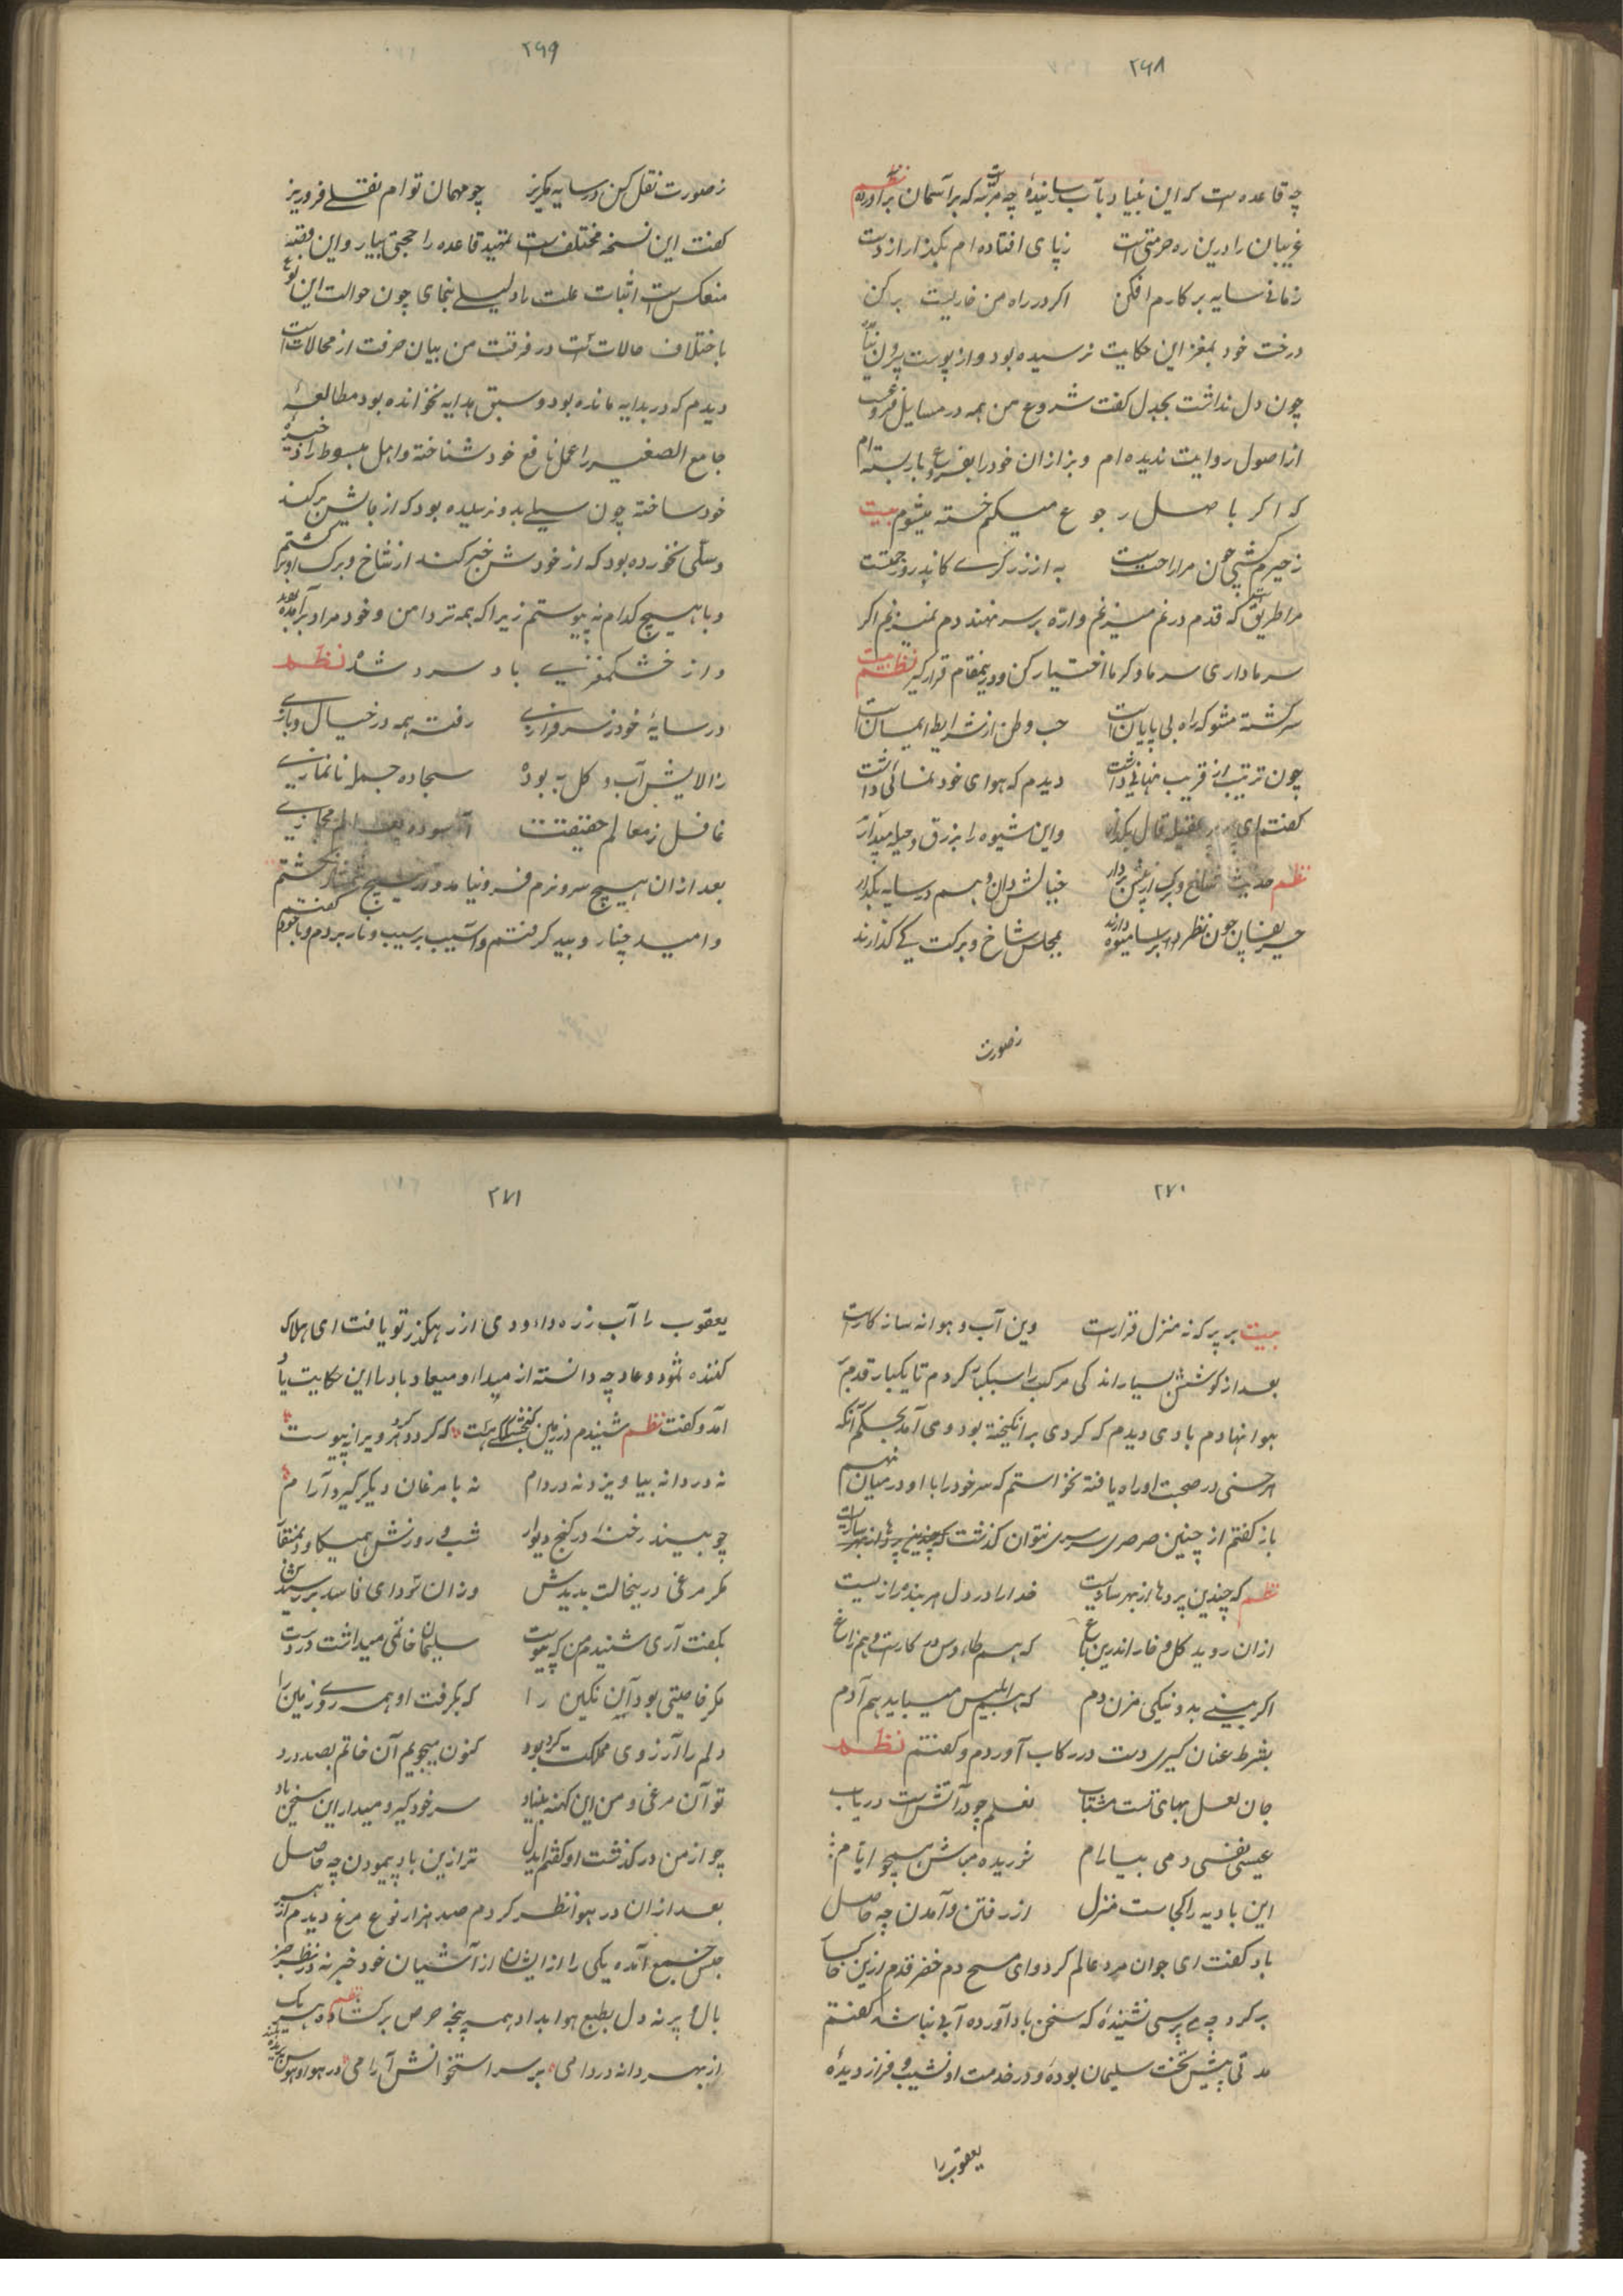 ۲۶۸
چه قاعده‌ست که این بنیاد بآب رسانیدهٔ چه مرتبه که بر آسمان برآورده نظم
غریبان را درین ره حرمتی است زپای افتاده‌ام بگذار از دست
زمانی سایه بر کارم افکن اگر در راه من خاریست برکن
درخت خود بمغز این حکایت نرسیده بود و از پوست برون نیامد
چون دل نداشت بجدل گفت شروع من همه در مسایل فروعست
از اصول روایت ندیده‌ام و بزازان خود را بفروع باربسته‌ام
که اگر با اصل رجوع میکنم خسته میشوم بیت
زحیرم کشی چون مرا راحت است به از زر گرسی کاندرو زحمتست
مرا طریق است که قدم در غم میزنم و ارّه بر سر نهند دم نمیزنم اگر
سر ما داری سرما و گرما اختیار کن و درینمقام قرار گیر نظم بیت
سرگشته مشو که راه بی پایان است حب وطن از شرایط ایمان است
چون تربیت از قریب نهانی داشت دیدم که هوای خود نمائی داشت
گفتم ای پیر عقیله قال بگذار واین شیوه را بزرق و حیله مپندار
نظم حدیث شاخ و برگ از پیش بردار خیالش دان و بسم در سایه بگذار
حریفان چون نظر بر سامیوه دارند بمجلس شاخ و برکت کی گذارند
زصورت
۲۶۹
زصورت نقل کن در سایه مگریز چو مهمان توام نقلی فروریز
گفت این نسخه مختلف است تمهید قاعده را حجتی بیار و این وقبه
منعکس است اثبات علت را دلیلی بنمای چون حوالت این نوع
باختلاف حالات است در فرقت من بیان حرفت از محالات است
دیدم که در بدایه مانده بود و سبق هدایه نخوانده بود مطالعهٔ
جامع الصغیر را عمل نافع خود شناخته و اهل مبسوط را ذخیرهٔ
خود ساخته چون سیلی بدو نرسیده بود که از جایش برکند
و سنگی نخورده بود که از خودش خبر کند از شاخ و برگ او برگشتم
و با هیچ کدام نه پیوستم زیرا که همه تر دامن و خود مراد برآمده بود
و از خشکمغزی باد سرد شدهٔ نظم
در سایهٔ خود زسرفرازی رفته همه در خیال و بازی
زالایش آب و گل به بودهٔ سجاده جمله نانمازی
غافل زمعالم حقیقت آسوده بعالم مجازی
بعد ازان بهیچ سروزم فرو نیامد و در هیچ شمشاد نگذشتم
و امید چنار و بید گرفتم و آسیب بر سیب و نار بردم و با خود گفتم
۲۷۰
بیت بر پر که نه منزل قرارست وین آب و هوا نه سازگارست
بعد از کوشش بسیار اندکی مرکب را سبکبار کردم تا یکبار قدم بر
هوا نهادم بادی دیدم که گردی برانگیخته بود و می آمد بحکم آنکه
هر خسی در صحبت او راه یافته نخواستم که سر خود را با او در میان نهم
باز گفتم از چنین صرصری سرسری نتوان گذشت که چندین پردها از بهر سازیست
نظم که چندین پردها از بهر سازیست خدا را در دل هر بنده رازیست
ازان روید گل و خار اندرین باغ که هم طاوس در کارست و هم زاغ
اگر بینی بد و نیکی مزن دم که هم ابلیس میباید هم آدم
بشرط عنان گیری دست در رکاب آوردم و گفتم نظم
جان لعل بهای تست مشتاب نعلم چو در آتش است دریاب
عیسی نفسی دمی بیارام شوریده مباش همچو ایام
این بادیه را کجاست منزل از رفتن و آمدن چه حاصل
باد گفت ای جوان مرد عالم گرد و ای مسیح دم خضر قدم ازین خاکسار
برگرد چه پرسی نشنیدهٔ که سخن باد آورده آبی نباشد گفتم
مدتی پیش تخت سلیمان بودهٔ و در خدمت او نشیب و فراز دیدهٔ
یعقوب را
۲۷۱
یعقوب را آب زره داودی از رهگذر تو یافت ای هلاک
کننده ثمود و عاد چه دانسته از مبداء و میعاد باد را این حکایت یاد
آمد و گفت نظم شنیدم در زمین گنجشککی هست که گرد هر ویرانه پیوست
نه در دانه بیاویزد نه در دام نه با مرغان دیگر گیرد آرام
چو بیند رخنهٔ در کنج دیوار شب و روزش همیکاود بمنقار
مگر مرغی درینحالت بدیدش وزان سودای فاسد برسیدش
بگفت آری شنیدم من که پیوست سلیمان خاتمی میداشت در دست
مگر خاصیتی بود آن نگین را که بگرفت او همه روی زمین را
دلم را آرزوی مملکت کرد بود کنون میجویم آن خاتم بصد درد
تو آن مرغی و من این کهنه بنیاد سر خود گیر و میدار این سخن یاد
چو از من درگذشت او گفتم ایدل ترا زین باد پیمودن چه حاصل
بعد ازان در هوا نظر کردم صد هزار نوع مرغ دیدم از هر
جنس جمع آمده یکی را از ایشان از آشیان خود خبر نه و در نظر جز
بال و پر نه دل بطبع هوا بداد همه پنجه حرص برگشاده نظم هر یک
از بهر دانه در دامی بر سر استخوانش آرامی در هوا و هوس پریده